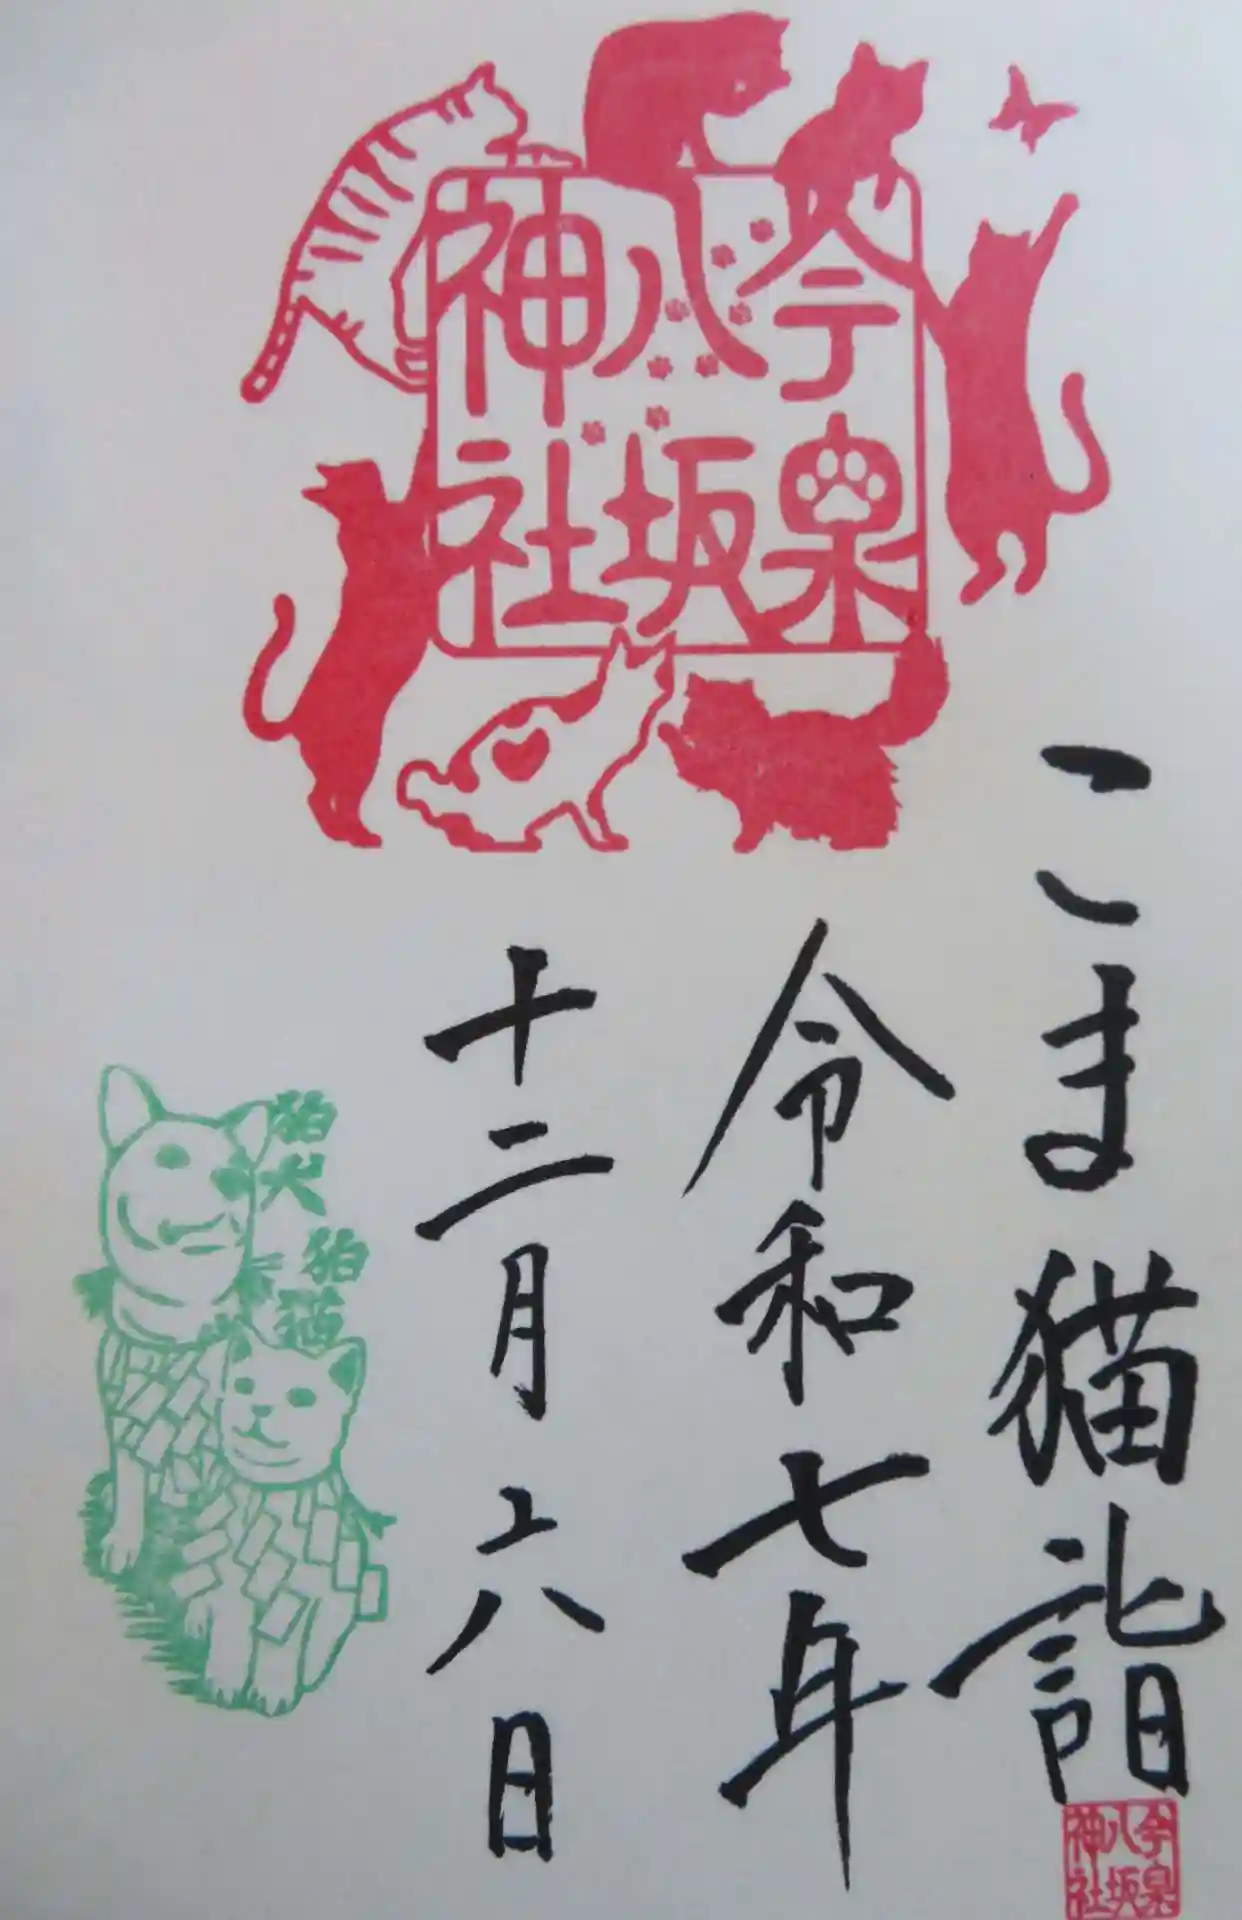 今泉
八坂
神社
こま猫詣
令和七年
十二月十六日
狛犬
狛猫
今泉
八坂
神社